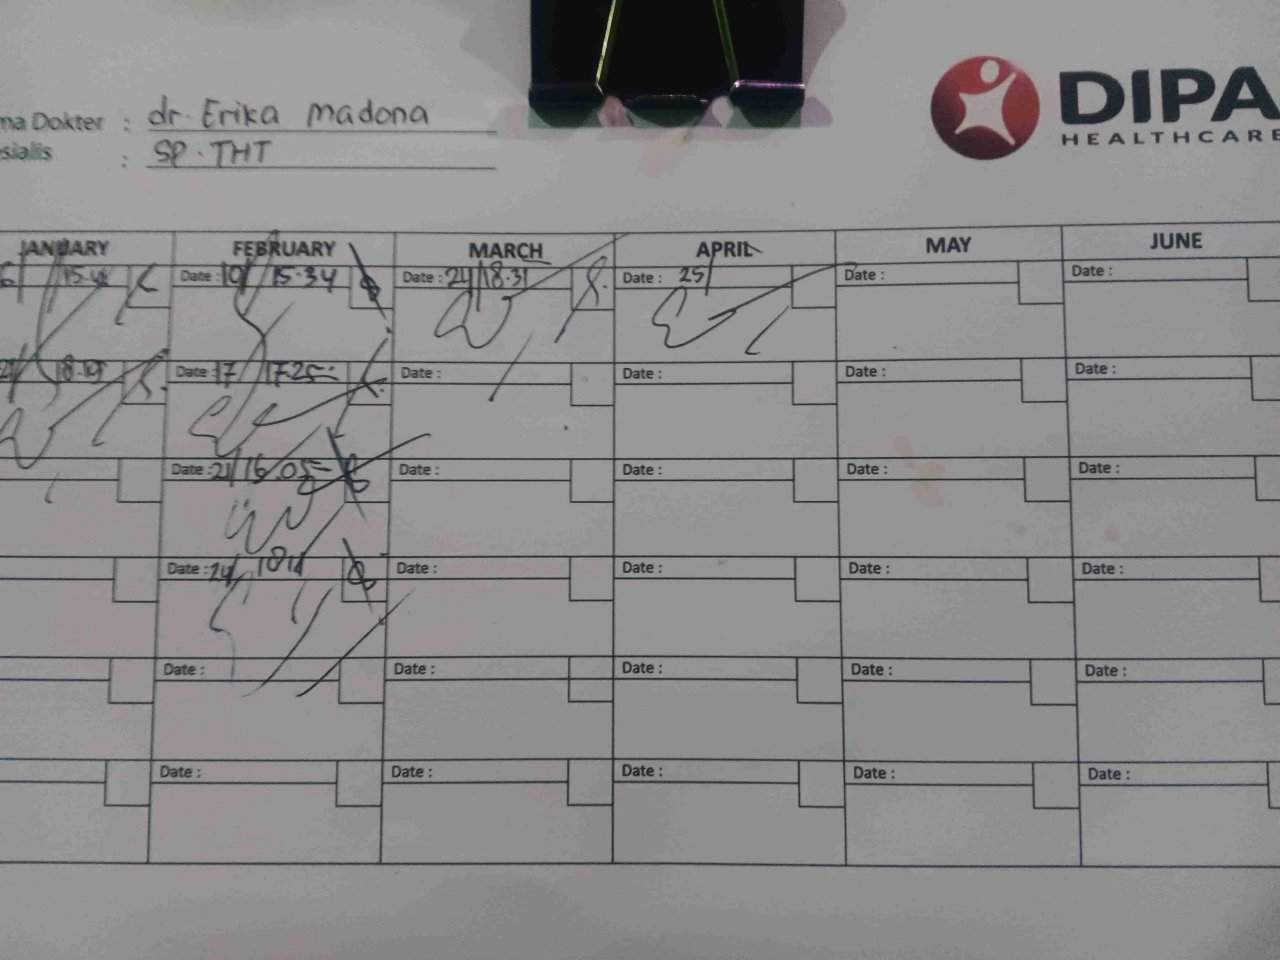 ma Dokter : dr. Erika Madona
sialis : SP. THT
DIPA
HEALTHCARE
JANUARY FEBRUARY MARCH APRIL MAY JUNE
Date : 10/ 15.34 Date : 24/18.31 Date : 25/ Date : Date :
18.19 Date : 17/ 17.25 Date : Date : Date : Date :
Date : 21/16.05 Date : Date : Date : Date :
Date : 24/ Date : Date : Date : Date :
Date : Date : Date : Date : Date :
Date : Date : Date : Date : Date :